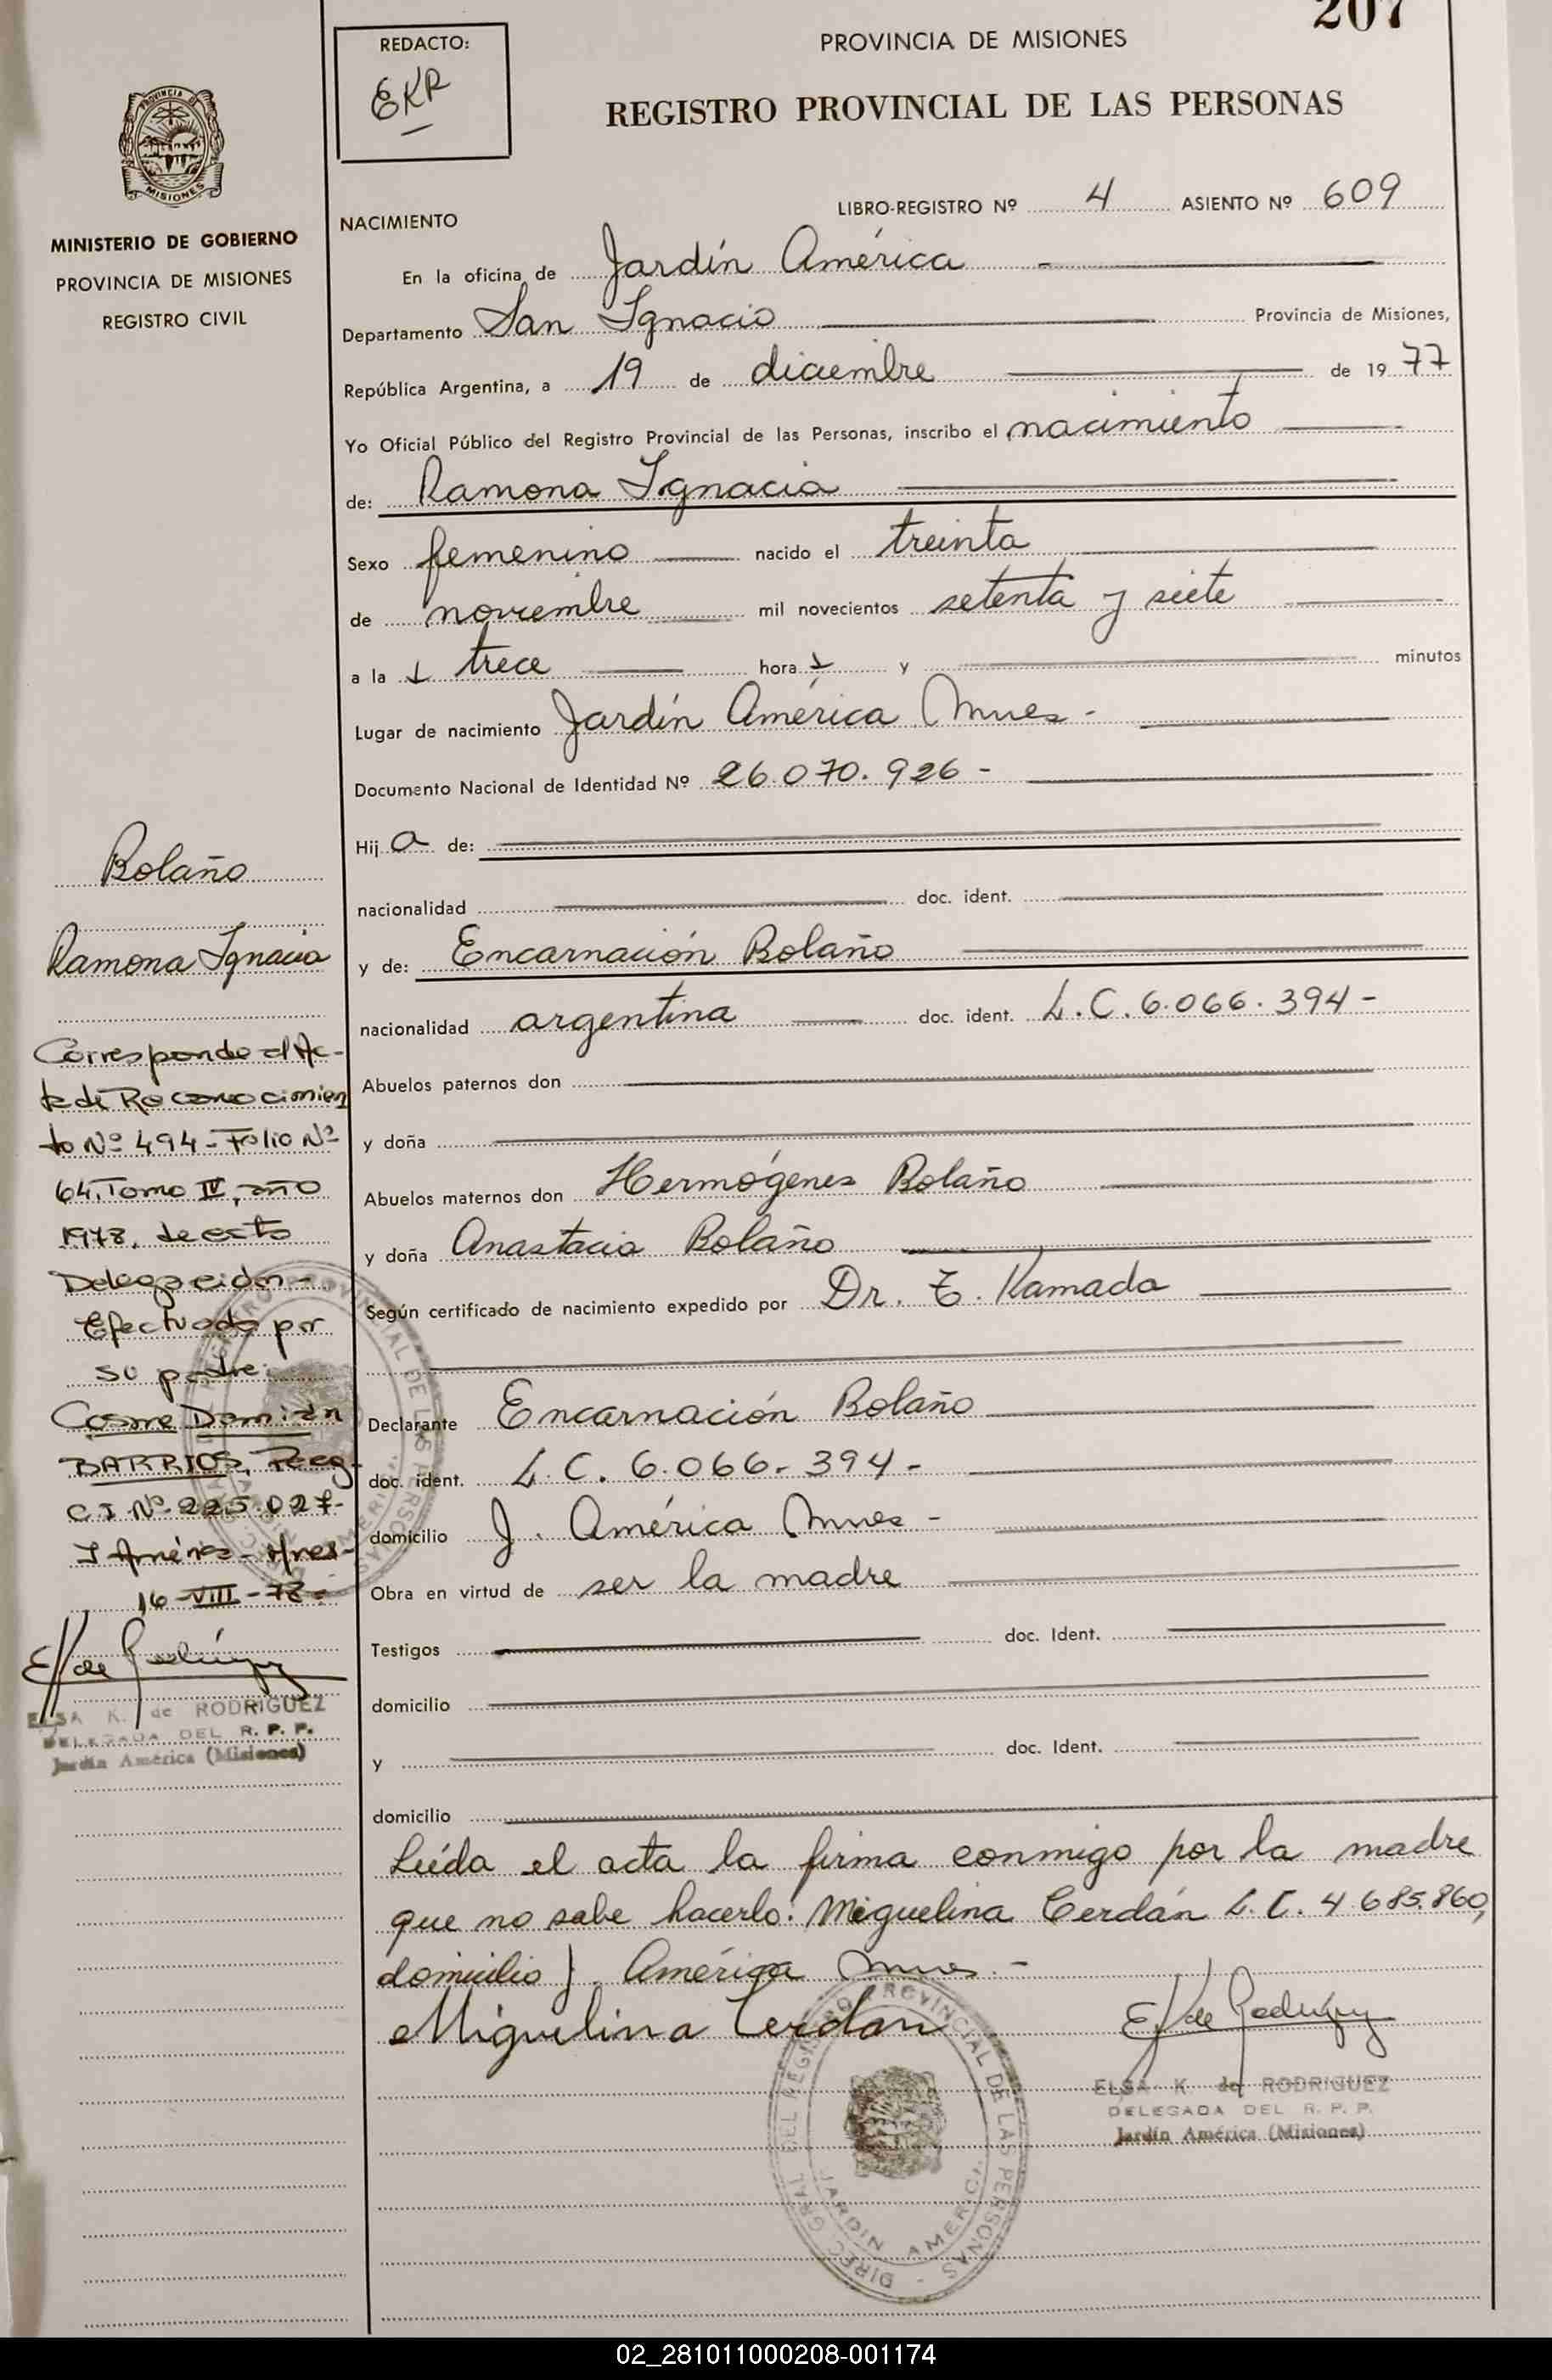 207
REDACTO:
EKR
PROVINCIA DE MISIONES
REGISTRO PROVINCIAL DE LAS PERSONAS
PROVINCIA DE
MISIONES
MINISTERIO DE GOBIERNO
PROVINCIA DE MISIONES
REGISTRO CIVIL
LIBRO-REGISTRO Nº 4 ASIENTO Nº 609
NACIMIENTO
En la oficina de Jardín América
Departamento San Ignacio Provincia de Misiones,
República Argentina, a 19 de diciembre de 1977
Yo Oficial Público del Registro Provincial de las Personas, inscribo el nacimiento
de: Ramona Ignacia
Sexo femenino nacido el treinta
de noviembre mil novecientos setenta y siete
a la s trece hora s y minutos
Lugar de nacimiento Jardín América Mnes-
Documento Nacional de Identidad Nº 26.070.926-
Hij a de:
nacionalidad doc. ident.
y de: Encarnación Bolaño
nacionalidad argentina doc. ident. L.C. 6.066.394-
Abuelos paternos don
y doña
Abuelos maternos don Hermógenes Bolaño
y doña Anastacia Bolaño
Según certificado de nacimiento expedido por Dr. T. Kamada
Declarante Encarnación Bolaño
doc. ident. L.C. 6.066.394-
domicilio J. América Mnes-
Obra en virtud de ser la madre
Testigos doc. Ident.
domicilio
y doc. Ident.
domicilio
Leída el acta la firma conmigo por la madre
que no sabe hacerlo: Miguelina Cerdán L.C. 4.685.860,
domicilio J. América Mnes.-
Miguelina Cerdan
E K de Rodríguez
ELSA K. de RODRIGUEZ
DELEGADA DEL R. P. P.
Jardín América (Misiones)
DIREC. GRAL. DEL REGISTRO PROVINCIAL DE LAS PERSONAS -
JARDIN AMERICA
Bolaño
Ramona Ignacia
Corresponde al Ac-
ta de Reconocimien
to Nº 494-Folio Nº
64, Tomo IV, año
1978, de esta
Delegación-
Efectuada por
su padre:
Cosme Damián
BARRIOS,
C.I. Nº 225.027-
J América-Mnes-
16-VIII-78-
E K de Rodríguez
ELSA K. de RODRIGUEZ
DELEGADA DEL R. P. P.
Jardín América (Misiones)
02_281011000208-001174